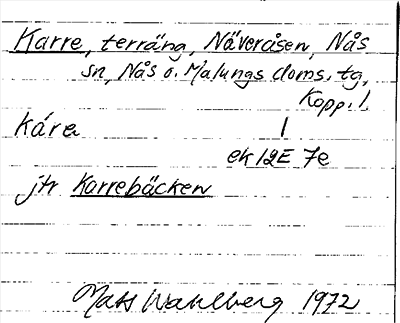 Karre, terräng, Näveråsen, Nås
sn, Nås o. Malungs doms. tg,
Kopp. l.
kára
ek 12E 7e
jfr Karrebäcken
Mats Wahlberg 1972